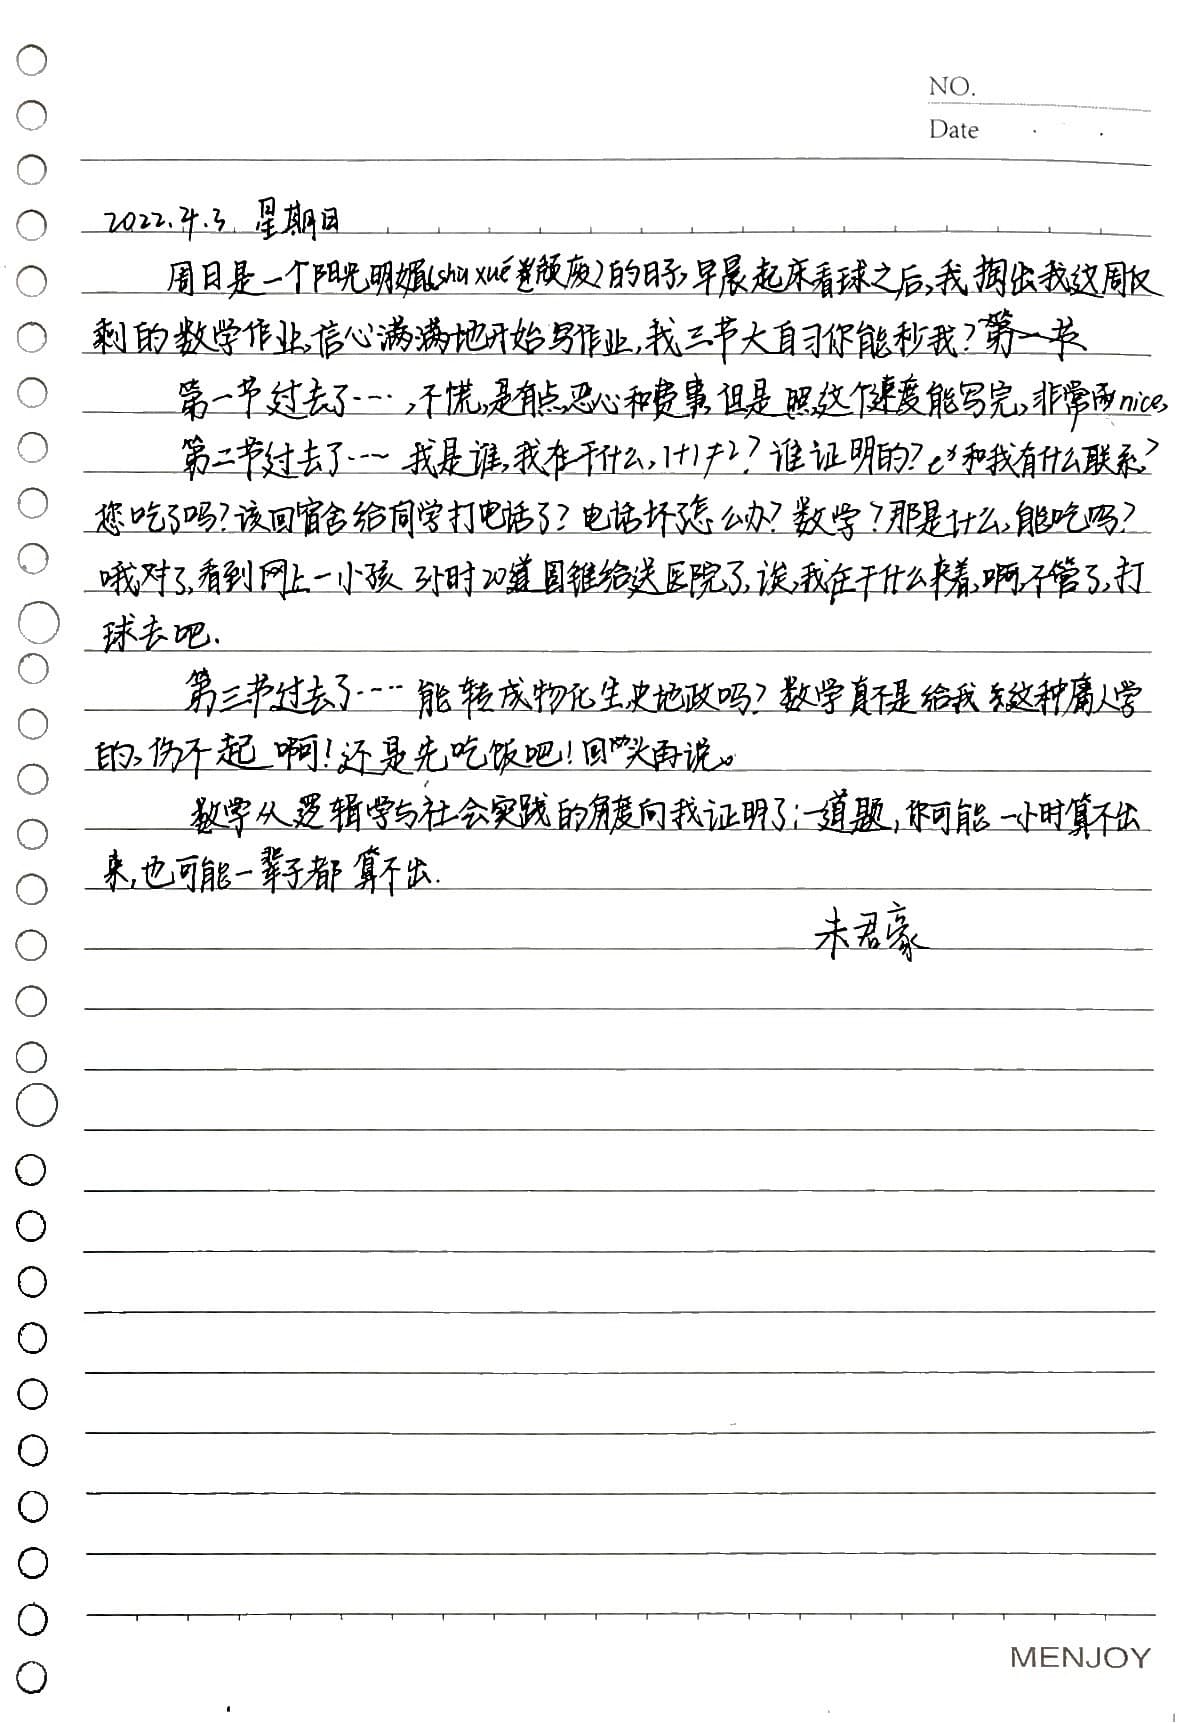 NO.
Date
2022.4.3 星期日
周日是一个阳光明媚(shu xué 颓废)的日子,早晨起床看球之后,我掏出我这周仅
剩的数学作业,信心满满地开始写作业,我三节大自习你能秒我?第一节
第一节过去了……,不慌,是有点恶心和费事,但是照这个速度能写完,非常nice,
第二节过去了…… 我是谁,我在干什么,1+1≠2?谁证明的?和我有什么联系?
您吃了吗?该回宿舍给同学打电话了?电话坏了怎么办?数学?那是什么,能吃吗?
哦,对了,看到网上一小孩 3小时20道圆锥给送医院了,诶,我在干什么来着,啊,不管了,打
球去吧.
第三节过去了…… 能转成物化生史地政吗?数学真不是给我这种庸人学
的,伤不起啊!还是先吃饭吧!回头再说。
数学从逻辑学与社会实践的角度向我证明了:一道题,你可能一小时算不出
来,也可能一辈子都算不出.
朱君豪
MENJOY